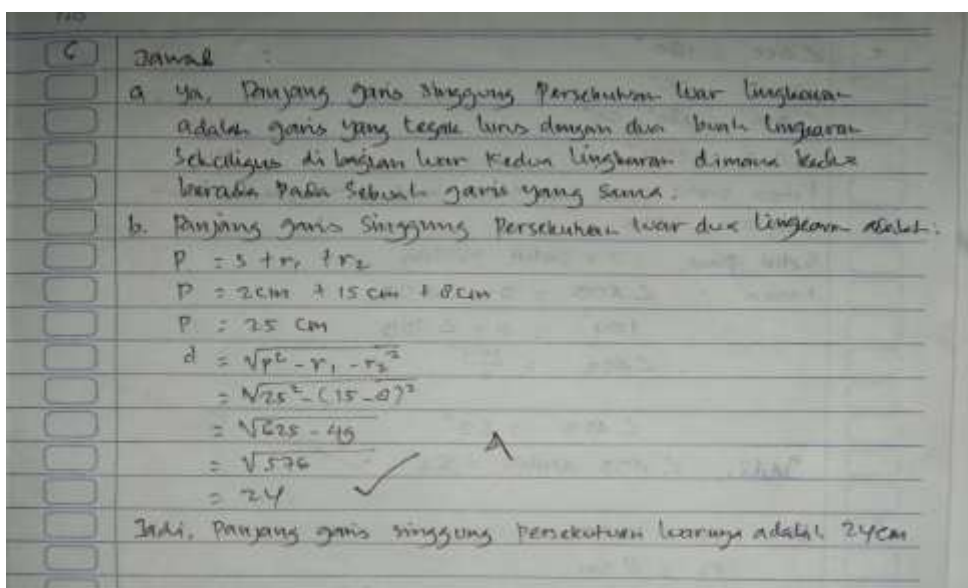 No
6 Jawab :
a ya, Panjang garis singgung Persekutuan luar lingkaran
adalah garis yang tegak lurus dengan dua buah lingkaran
Sekaligus di bagian luar kedua lingkaran dimana kedua
berada pada sebuah garis yang sama.
b. Panjang garis singgung Persekutuan luar dua lingkaran adalah:
P = s + r₁ + r₂
P = 2cm + 15 cm + 8cm
P = 25 cm
d = √p² - r₁ - r₂²
= √25² - (15 - 8)²
= √625 - 49
= √576
= 24
Jadi, Panjang garis singgung persekutuan luarnya adalah 24cm